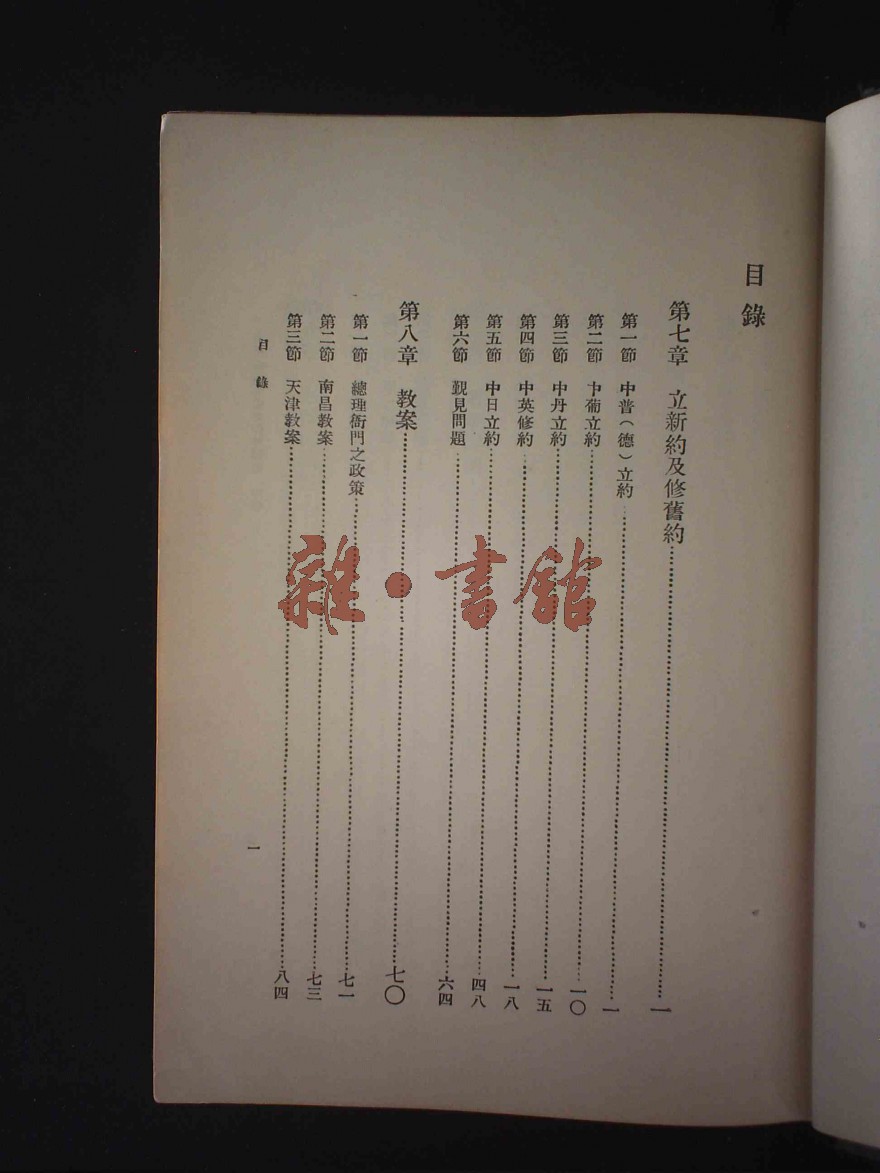 目錄
第七章　立新約及修舊約……一
第一節　中普（德）立約……一
第二節　中葡立約……一〇
第三節　中丹立約……一五
第四節　中英修約……一八
第五節　中日立約……四八
第六節　覲見問題……六四
第八章　教案……七〇
第一節　總理衙門之政策……七一
第二節　南昌教案……七三
第三節　天津教案……八四
目錄
一
雜·書館